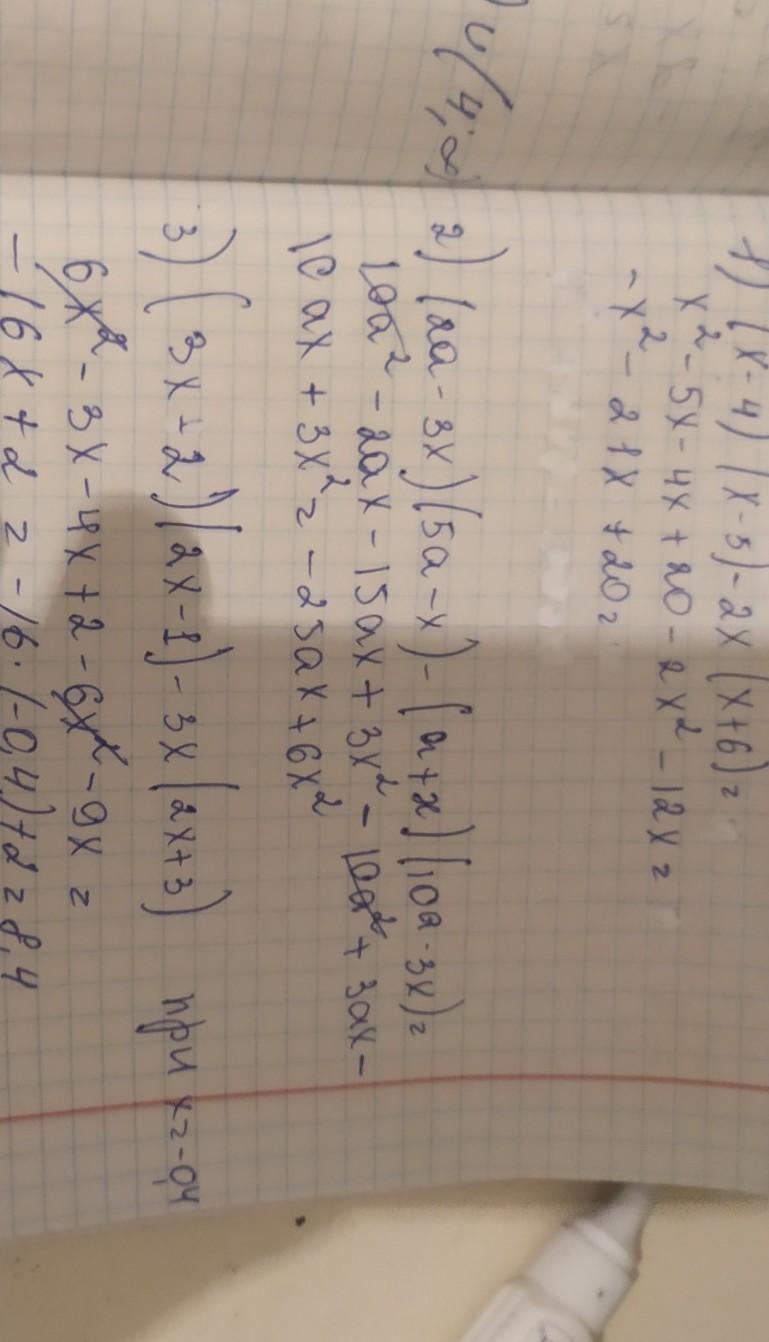 1) (x-4)(x-5)-2x(x+6)=
x²-5x-4x+20-2x²-12x=
-x²-21x+20=
2) (2a-3x)(5a-x)-(a+x)(10a-3x)=
10a²-2ax-15ax+3x²-10a²+3ax-
10ax+3x²=-25ax+6x²
3) (3x-2)(2x-1)-3x(2x+3) при x=-0,4
6x²-3x-4x+2-6x²-9x=
-16x+2=-16·(-0,4)+2=8,4